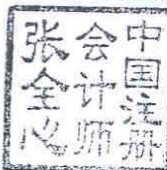 中国注册
会计师
张全心